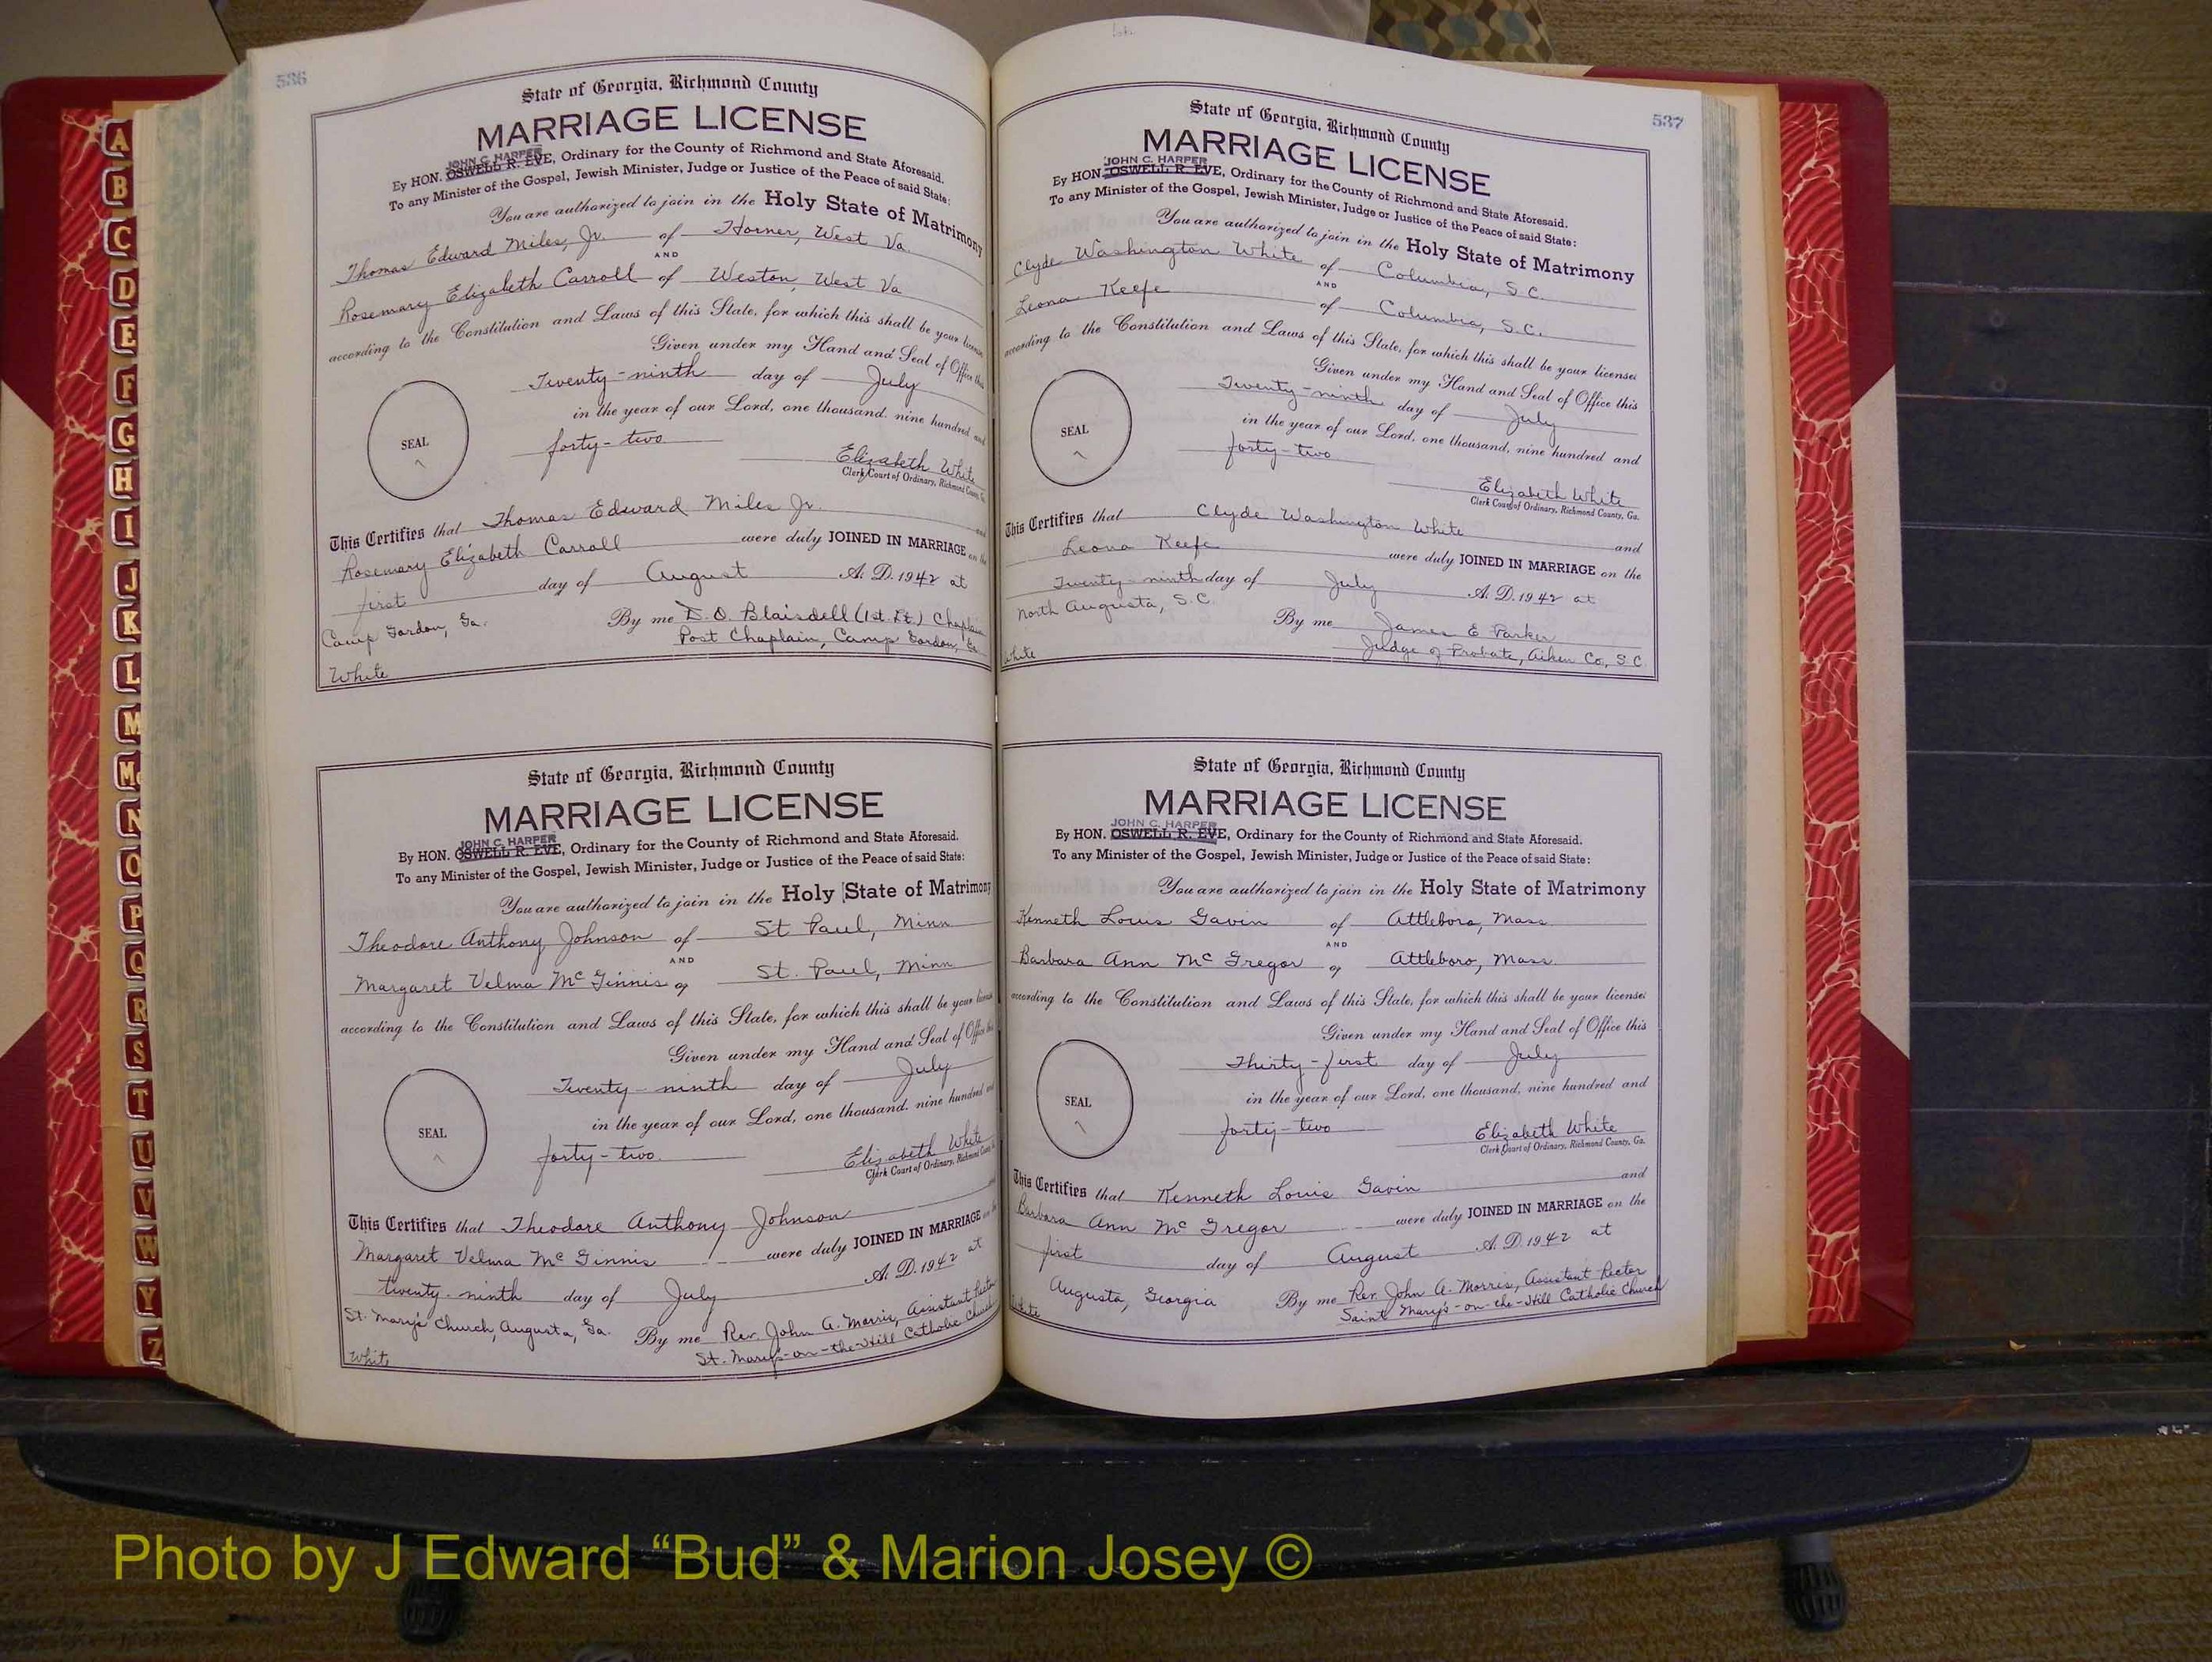 536
State of Georgia, Richmond County
MARRIAGE LICENSE
JOHN C. HARPER
By HON. OSWELL R. EVE, Ordinary for the County of Richmond and State Aforesaid.
To any Minister of the Gospel, Jewish Minister, Judge or Justice of the Peace of said State:
You are authorized to join in the Holy State of Matrimony
Thomas Edward Miles, Jr. of Horner, West Va.
AND
Rosemary Elizabeth Carroll of Weston, West Va
according to the Constitution and Laws of this State, for which this shall be your license
Given under my Hand and Seal of Office this
Twenty-ninth day of July
in the year of our Lord, one thousand, nine hundred and
SEAL
forty-two
Elizabeth White
Clerk Court of Ordinary, Richmond County, Ga.
This Certifies that Thomas Edward Miles Jr. and
Rosemary Elizabeth Carroll were duly JOINED IN MARRIAGE on the
first day of August A. D. 1942 at
Camp Gordon, Ga. By me D. O. Blaisdell (1st Lt.) Chaplain
Post Chaplain, Camp Gordon, Ga
White
State of Georgia, Richmond County
MARRIAGE LICENSE
JOHN C. HARPER
By HON. OSWELL R. EVE, Ordinary for the County of Richmond and State Aforesaid.
To any Minister of the Gospel, Jewish Minister, Judge or Justice of the Peace of said State:
You are authorized to join in the Holy State of Matrimony
Theodore Anthony Johnson of St Paul, Minn
AND
Margaret Velma McGinnis of St. Paul, Minn
according to the Constitution and Laws of this State, for which this shall be your license
Given under my Hand and Seal of Office this
Twenty-ninth day of July
in the year of our Lord, one thousand, nine hundred and
SEAL
forty-two.
Elizabeth White
Clerk Court of Ordinary, Richmond County
This Certifies that Theodore Anthony Johnson
Margaret Velma McGinnis were duly JOINED IN MARRIAGE on the
twenty-ninth day of July A. D. 1942 at
St. Mary's Church, Augusta, Ga. By me Rev. John A. Morris, Assistant Rector
St. Mary's-on-the-Hill Catholic Church
White
537
State of Georgia, Richmond County
MARRIAGE LICENSE
JOHN C. HARPER
By HON. OSWELL R. EVE, Ordinary for the County of Richmond and State Aforesaid.
To any Minister of the Gospel, Jewish Minister, Judge or Justice of the Peace of said State:
You are authorized to join in the Holy State of Matrimony
Clyde Washington White of Columbia, S.C.
AND
Leona Keefe of Columbia, S.C.
according to the Constitution and Laws of this State, for which this shall be your license
Given under my Hand and Seal of Office this
Twenty-ninth day of July
in the year of our Lord, one thousand, nine hundred and
SEAL
forty-two
Elizabeth White
Clerk Court of Ordinary, Richmond County, Ga.
This Certifies that Clyde Washington White and
Leona Keefe were duly JOINED IN MARRIAGE on the
Twenty-ninth day of July A. D. 1942 at
North Augusta, S.C. By me James E Parker
Judge of Probate, Aiken Co, S C
White
State of Georgia, Richmond County
MARRIAGE LICENSE
JOHN C. HARPER
By HON. OSWELL R. EVE, Ordinary for the County of Richmond and State Aforesaid.
To any Minister of the Gospel, Jewish Minister, Judge or Justice of the Peace of said State:
You are authorized to join in the Holy State of Matrimony
Kenneth Louis Gavin of Attleboro, Mass.
AND
Barbara Ann McGregor of Attleboro, Mass.
according to the Constitution and Laws of this State, for which this shall be your license
Given under my Hand and Seal of Office this
Thirty-first day of July
in the year of our Lord, one thousand, nine hundred and
SEAL
forty-two
Elizabeth White
Clerk Court of Ordinary, Richmond County, Ga.
This Certifies that Kenneth Louis Gavin and
Barbara Ann McGregor were duly JOINED IN MARRIAGE on the
first day of August A. D. 1942 at
Augusta, Georgia By me Rev. John A. Morris, Assistant Rector
Saint Mary's-on-the-Hill Catholic Church
White
A
B
C
D
E
F
G
H
I
J
K
L
M
Mc
N
O
P
Q
R
S
T
U
V
W
Y
Z
Photo by J Edward “Bud” & Marion Josey ©